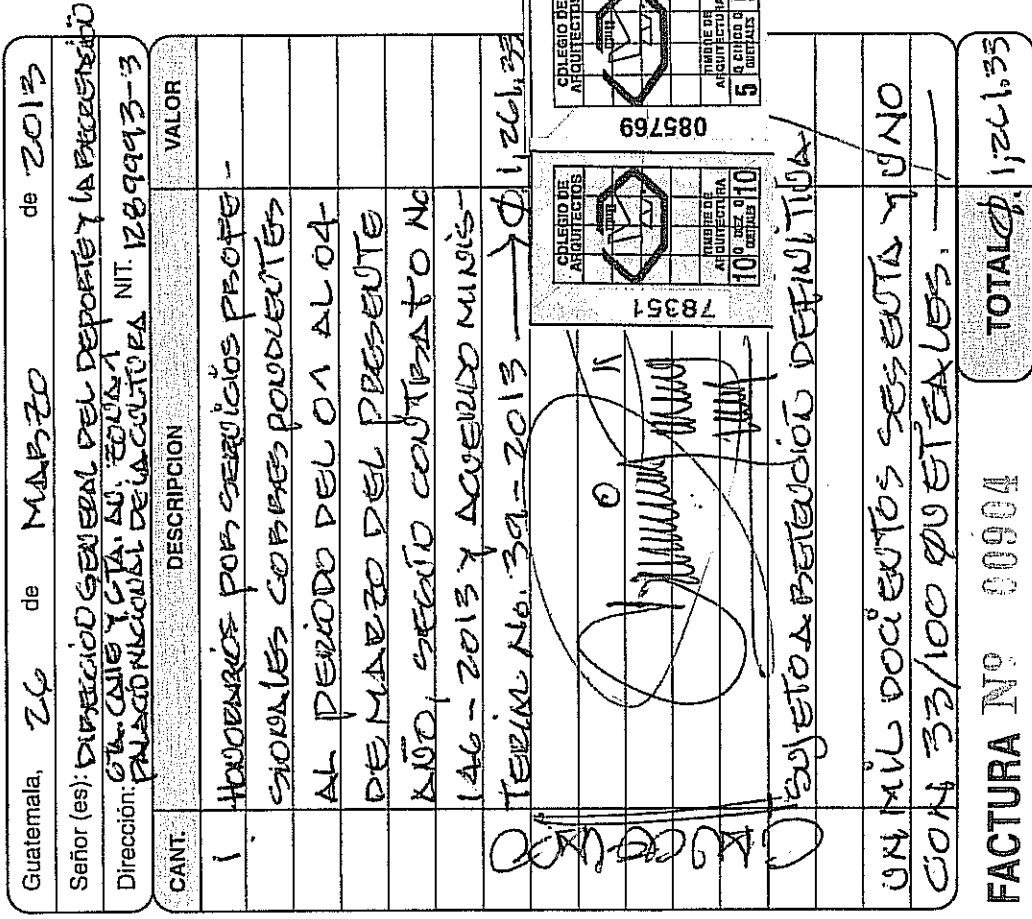 Guatemala, 26 de MARZO de 2013
Señor (es): DIRECCIÓN GENERAL DEL DEPORTE Y LA RECREACIÓN
Dirección: 6TA. CALLE Y 6TA. AV. ZONA 1
PALACIO NACIONAL DE LA CULTURA NIT. 1289993-3
CANT. DESCRIPCION VALOR
1 HONORARIOS POR SERVICIOS PROFE-
SIONALES CORRESPONDIENTES
AL PERIODO DEL 01 AL 04-
DE MARZO DEL PRESENTE
AÑO, SEGÚN CONTRATO No
146-2013 Y ACUERDO MINIS-
TERIAL No. 391-2013 Q 1,261.33
COLEGIO DE ARQUITECTOS
78351
TIMBRE DE ARQUITECTURA
10 Q DIEZ Q 10
QUETZALES
COLEGIO DE ARQUITECTOS
085769
TIMBRE DE ARQUITECTURA
5 Q CINCO Q
QUETZALES
CANCELADO
SUJETO A RETENCIÓN DEFINITIVA
UN MIL DOCIENTOS SESENTA Y UNO
CON 33/100 QUETZALES.
FACTURA Nº 00904 TOTAL Q. 1,261.33